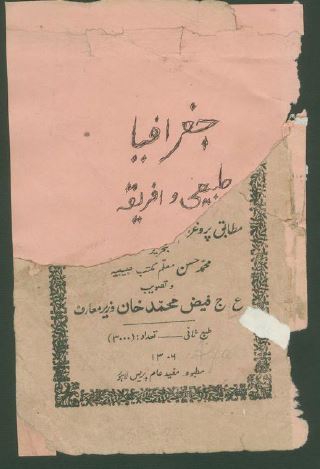 جغرافیا
طبیعی و افریقه
مطابق پروغر
محمد حسن معلم مکتب حبیبیه
و تصویب
ع ج فیض محمد خان وزیر معارف
طبع ثانی — تعداد: (۳۰۰۰)
۱۳۰۶
مطبوعه مفید عام پریس لاہور